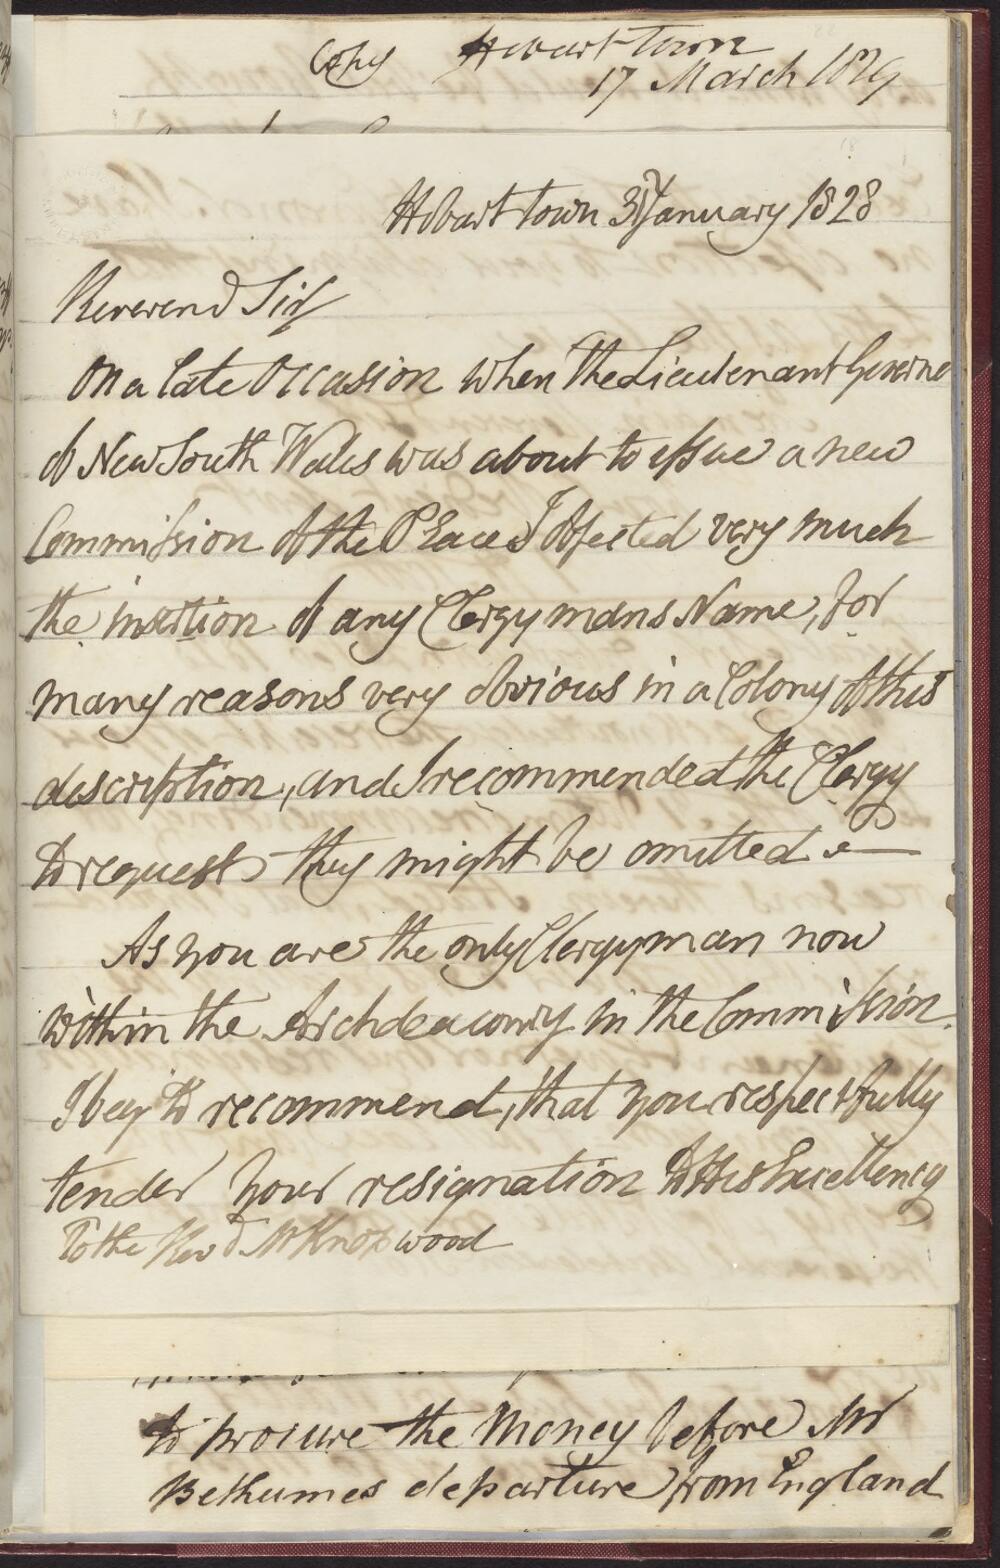 Copy Hobart Town
17 March 1829
Hobart town 31 January 1828
Reverend Sir
On a late Occasion when the Lieutenant Governor
of New South Wales was about to issue a new
Commission of the Peace I objected very much
the insertion of any Clergymans Name, for
many reasons very obvious in a Colony of this
description, and I recommended the Clergy
to request they might be omitted
As you are the only Clergyman now
within the Archdeaconry in the Commission
I beg to recommend, that you respectfully
tender your resignation to His Excellency
To the Revd Mr Knopwood
to procure the Money before Mr
Bethumes departure from England